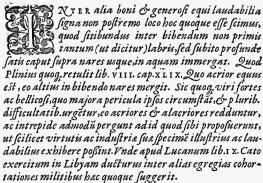 INTER alia boni & generosi equi laudabilia
signa non postremo loco hoc quoque esse scimus,
quod sitibundus inter bibendum non primis
tantum (ut dicitur) labris, sed subito profunde
satis caput supra nares usque, in aquam immergat. Quod
Plinius quoq, retulit lib. VIII. cap. XLIX. Quo acrior equus
est, eo altius in bibendo nares mergit. Sic quoq, viri fortes
ac bellicosi, quo major a pericula ipsos circumstãt, & plurib.
difficultatib. urgẽtur, eo acriores & alacriores redduntur,
ac intrepide admodũ pergunt ad id quod sibi proposuerunt,
ut scilicet virtutis ac industriæ suæ specimẽ illustrius ac lau-
dabilius exhibere possint. Vnde apud Lucanum lib. IX. Cato
exercitum in Libyam ducturus inter alias egregias cohor-
tationes militibus hæc quoque suggerit.